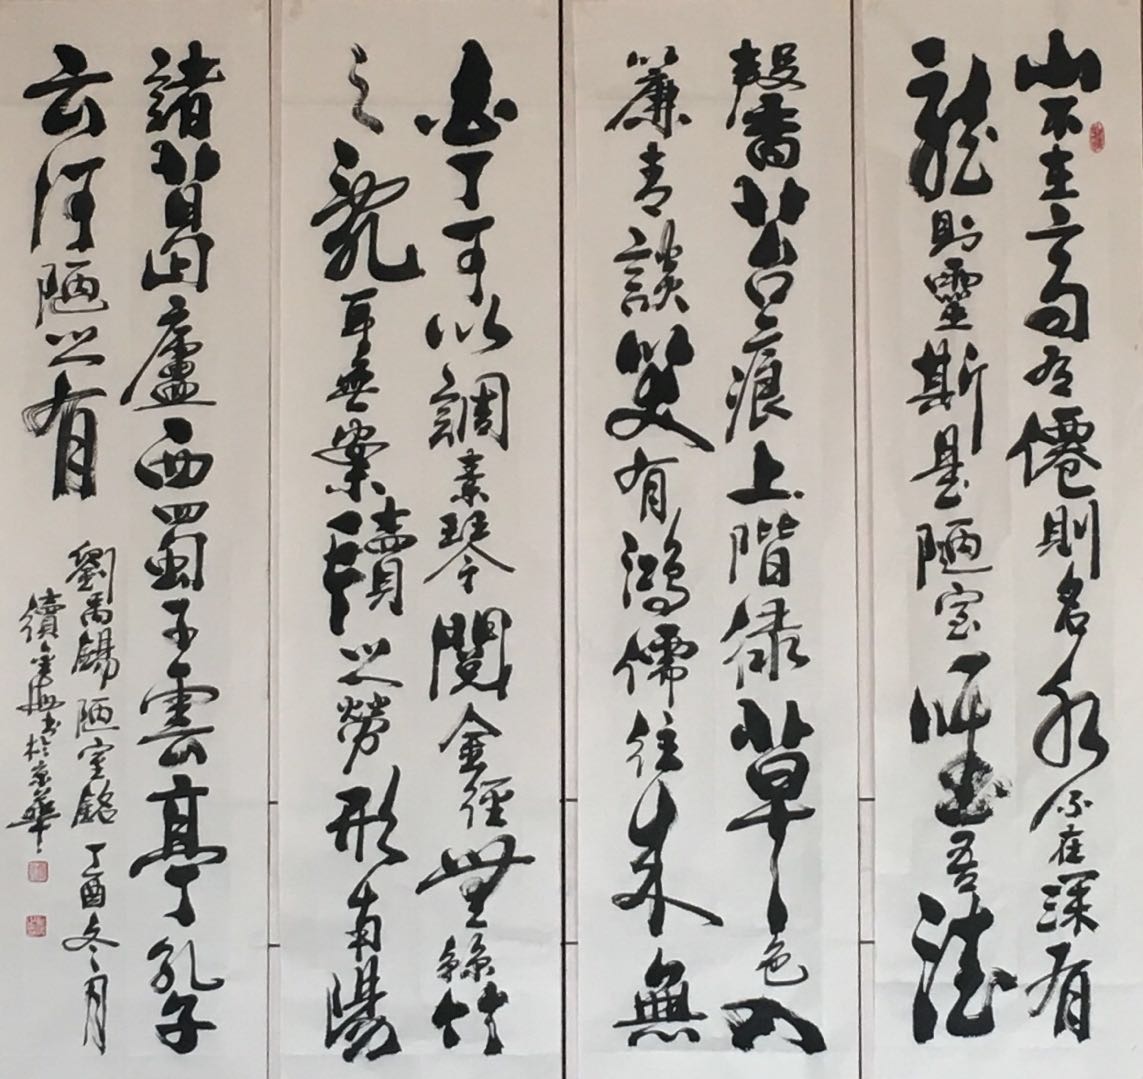 山不在高有僊則名水不在深有
龍則靈斯是陋室惟吾德
馨苔痕上階緑草色入
簾青談笑有鴻儒往来無
白丁可以調素琴閱金經無絲竹
之亂耳無案牘之勞形南陽
諸葛廬西蜀子雲亭孔子
云何陋之有
劉禹錫陋室銘丁酉冬月
續金海書於京華